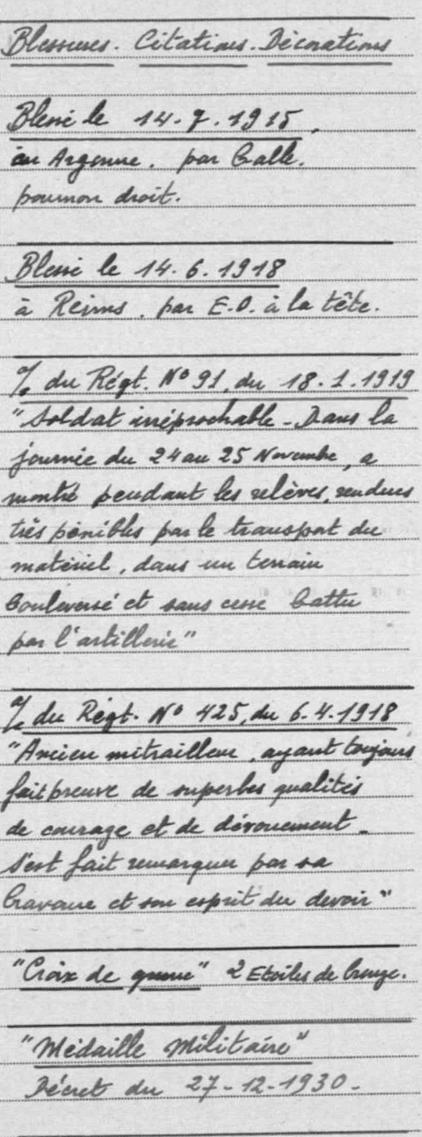 Blessures. Citations. Décorations
Blessé le 14.7.1915,
en Argonne, par balle.
poumon droit.
Blessé le 14.6.1918
à Reims, par E.O. à la tête.
% du Régt. N° 91, du 18.1.1919
"Soldat irréprochable - Dans la
journée du 24 au 25 Novembre, a
montré pendant les relèves, rendues
très pénibles par le transport du
matériel, dans un terrain
bouleversé et sans cesse battu
par l'artillerie"
% du Régt. N° 425, du 6.4.1918
"Ancien mitrailleur, ayant toujours
fait preuve de superbes qualités
de courage et de dévouement -
s'est fait remarquer par sa
bravoure et son esprit du devoir"
"Croix de guerre" 2 Etoiles de bronze.
"Médaille Militaire"
Décret du 27-12-1930-